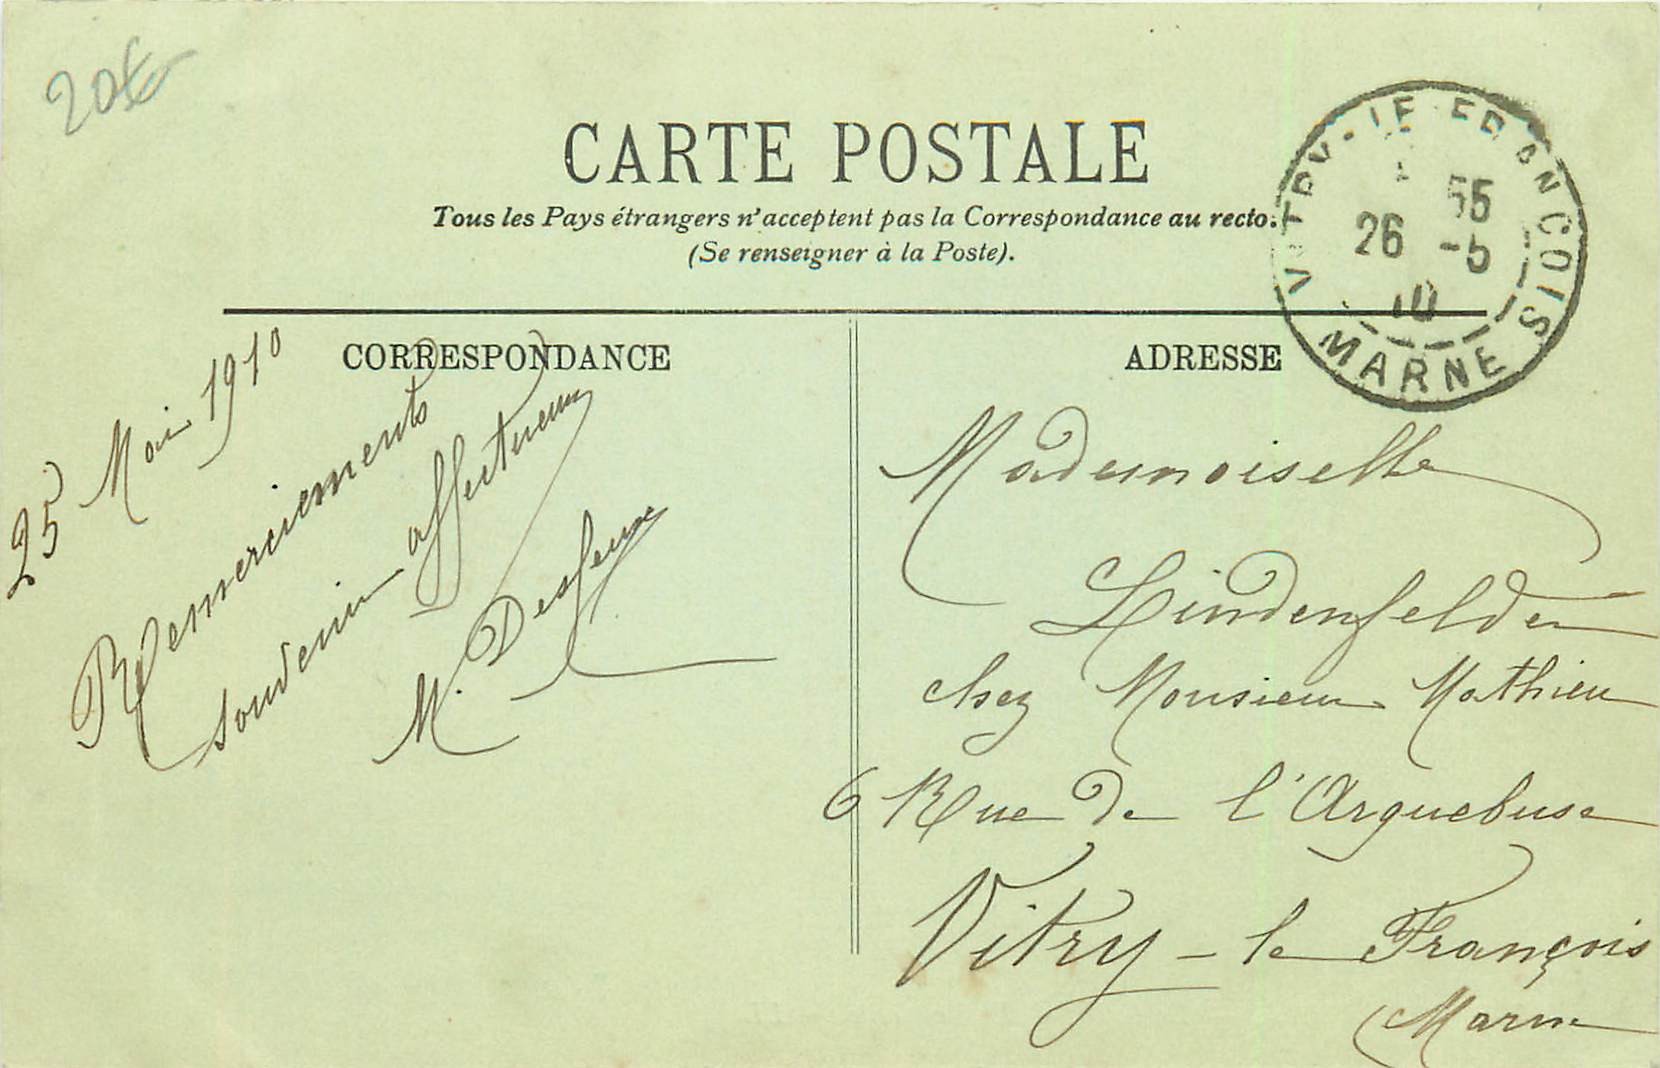 20€
CARTE POSTALE
Tous les Pays étrangers n'acceptent pas la Correspondance au recto.
(Se renseigner à la Poste).
VITRY-LE-FRANCOIS
55
26 -5
10
MARNE
CORRESPONDANCE
ADRESSE
25 Mai 1910
Remerciements
souvenir affectueux
M. Desfeux
Mademoiselle
Lindenfelder
chez Monsieur Mathieu
6 Rue de l'Arquebuse
Vitry-le François
(Marne